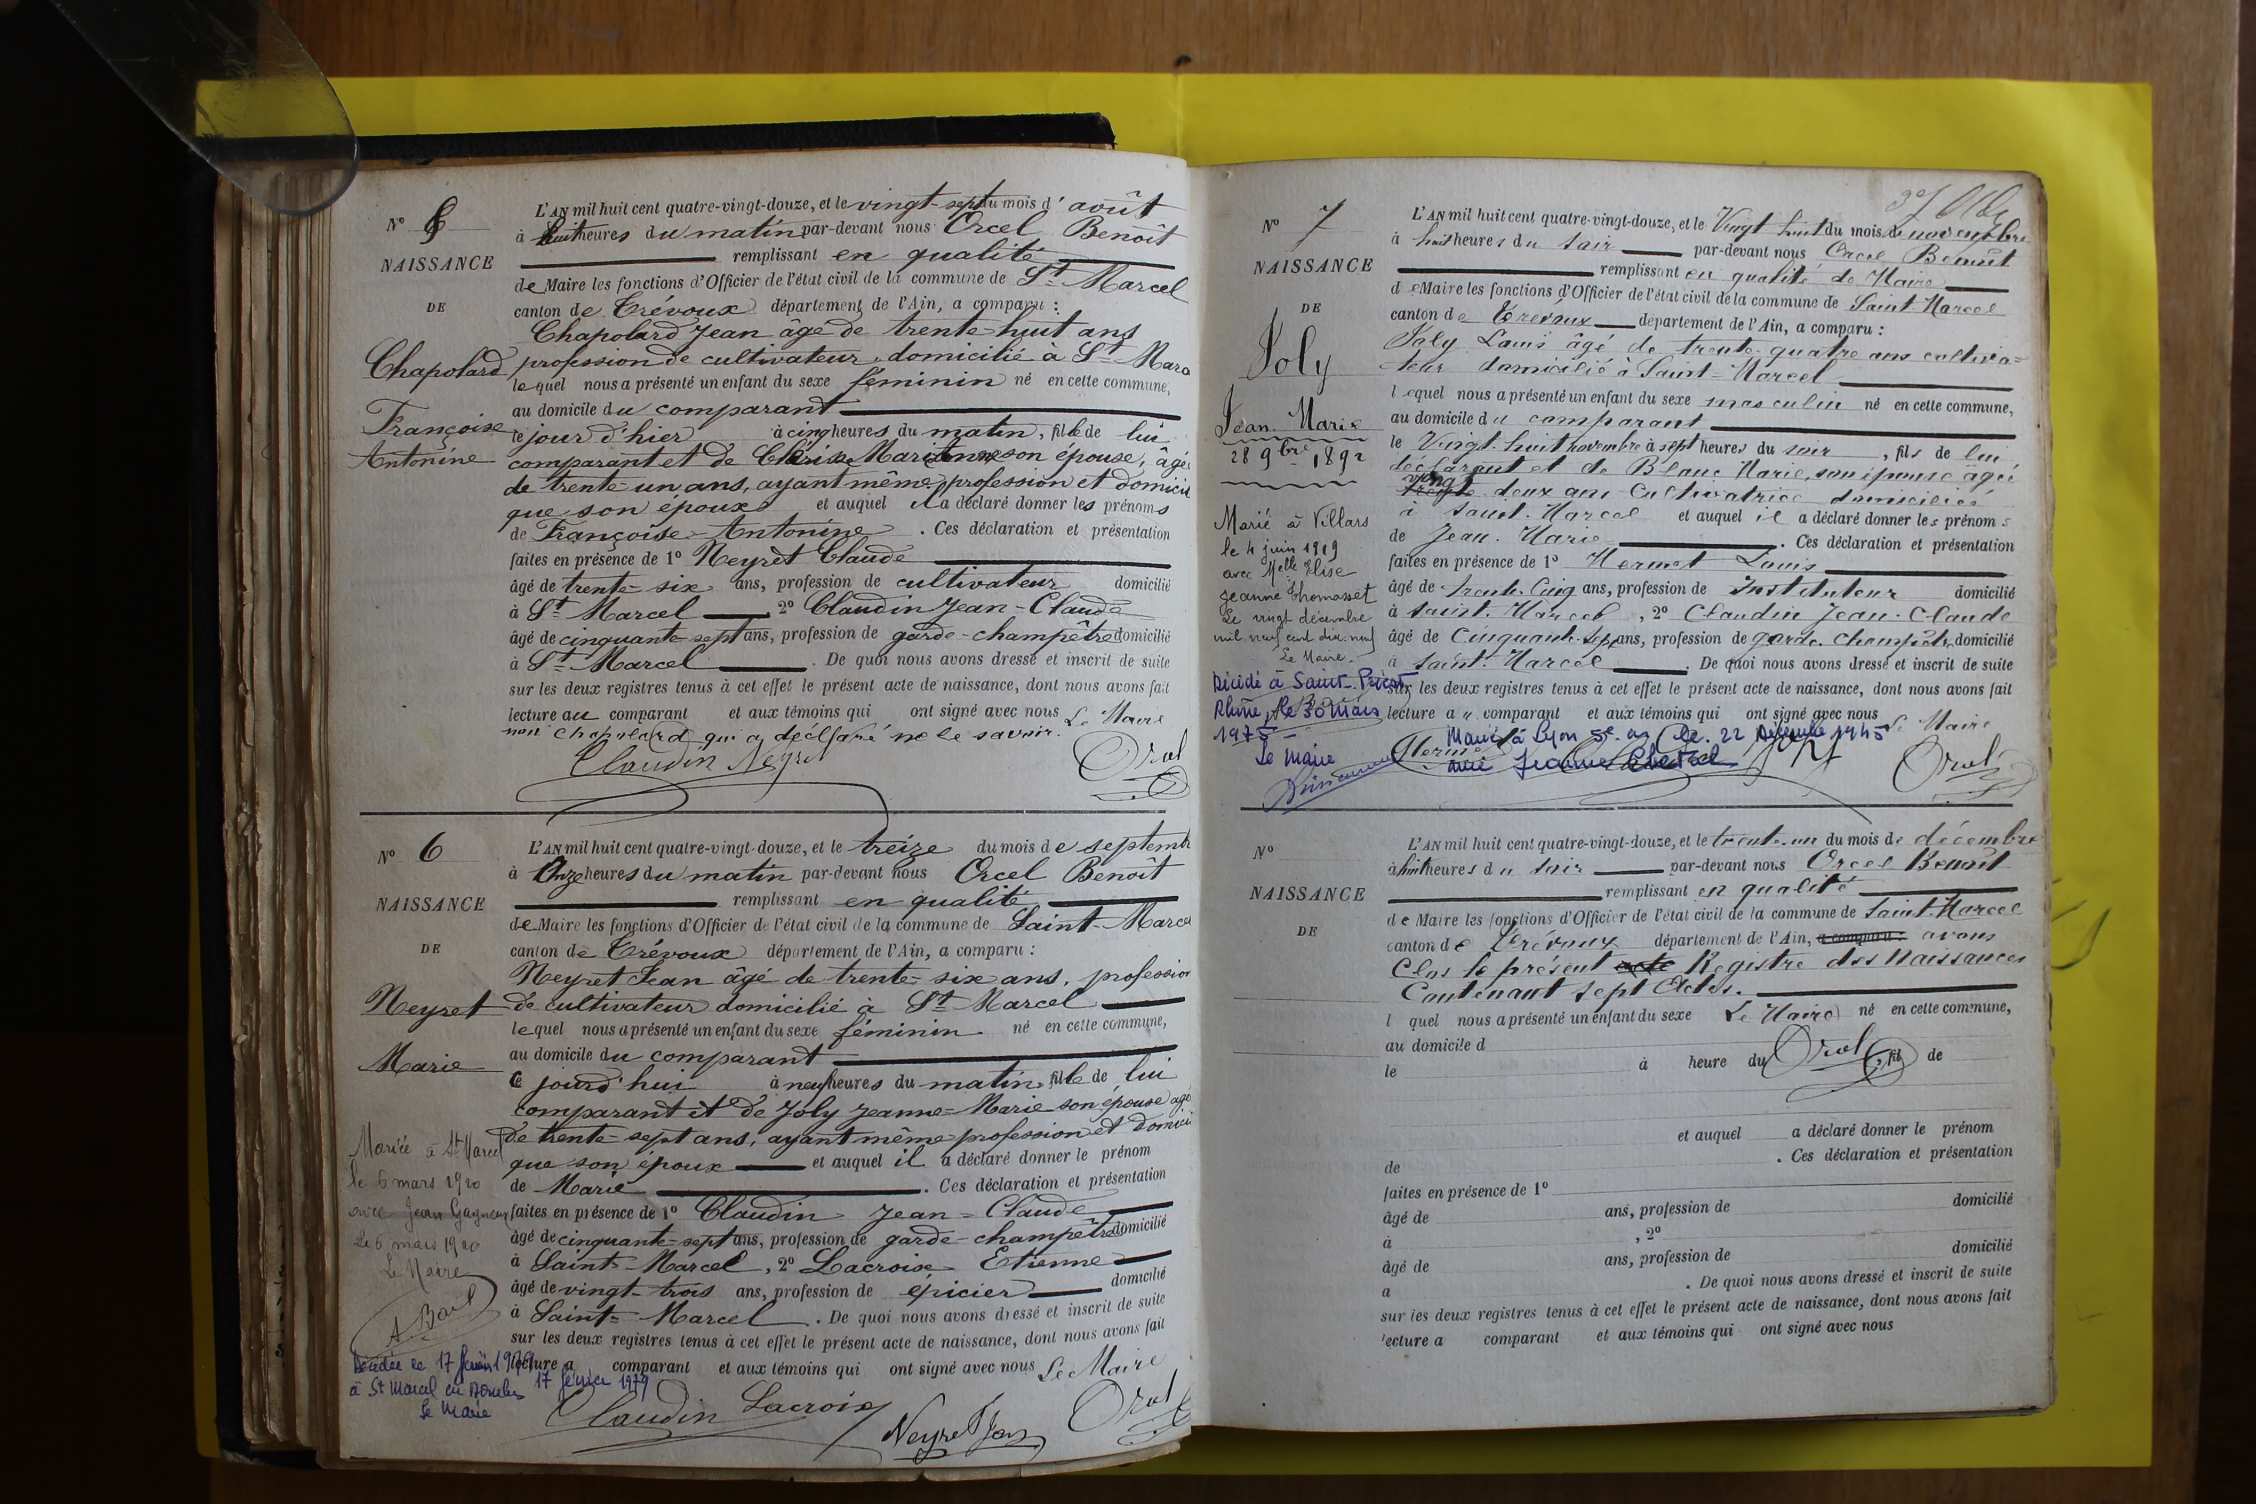 N° 5
NAISSANCE
DE
Chapolard
Françoise
Antonine
L'AN mil huit cent quatre-vingt-douze, et le vingt-sept du mois d'août
à huit heures du matin par-devant nous Orcel Benoît
remplissant en qualité
de Maire les fonctions d'Officier de l'état civil de la commune de St Marcel
canton de Trévoux département de l'Ain, a comparu :
Chapolard Jean âgé de trente-huit ans
profession de cultivateur domicilié à St Marc
lequel nous a présenté un enfant du sexe féminin né en cette commune,
au domicile du comparant
le jour d'hier à cinq heures du matin, fille de lui
comparant et de Marie son épouse, âgée
de trente-un ans, ayant même profession et domicil
que son époux et auquel il a déclaré donner les prénoms
de Françoise-Antonine. Ces déclaration et présentation
faites en présence de 1° Neyret Claude
âgé de trente-six ans, profession de cultivateur domicilié
à St Marcel 2° Claudin Jean-Claude
âgé de cinquante-sept ans, profession de garde-champêtre domicilié
à St Marcel. De quoi nous avons dressé et inscrit de suite
sur les deux registres tenus à cet effet le présent acte de naissance, dont nous avons fait
lecture au comparant et aux témoins qui ont signé avec nous Le Maire
non Chapolard qui a déclaré ne le savoir.
Claudin Neyret Orcel
N° 6
NAISSANCE
DE
Neyret
Marie
Mariée à St Marcel
le 6 mars 1920
avec Jean Gagneux
Le 6 mars 1920
Le Maire
Décédée le 17 février 1979
à St Marcel en Dombes
Le Maire
L'AN mil huit cent quatre-vingt-douze, et le treize du mois de septemb
à Onze heures du matin par-devant nous Orcel Benoît
remplissant en qualité
de Maire les fonctions d'Officier de l'état civil de la commune de Saint-Marce
canton de Trévoux département de l'Ain, a comparu :
Neyret Jean âgé de trente-six ans, profession
de cultivateur domicilié à St Marcel
lequel nous a présenté un enfant du sexe féminin né en cette commune,
au domicile du comparant
ce jourd'hui à neuf heures du matin, fille de lui
comparant et de Joly Jeanne-Marie son épouse âgé
de trente-sept ans, ayant même profession et domici
que son époux et auquel il a déclaré donner le prénom
de Marie. Ces déclaration et présentation
faites en présence de 1° Claudin Jean-Claude
âgé de cinquante-sept ans, profession de garde-champêtre domicilié
à Saint-Marcel, 2° Lacroix Etienne
âgé de vingt-trois ans, profession de épicier domicilié
à Saint-Marcel. De quoi nous avons dressé et inscrit de suite
sur les deux registres tenus à cet effet le présent acte de naissance, dont nous avons fait
lecture a comparant et aux témoins qui ont signé avec nous Le Maire
17 février 1979
Claudin Lacroix Neyret Jean Orcel
N° 7
NAISSANCE
DE
Joly
Jean-Marie
28 9bre 1892
Marié à Villars
le 4 juin 1919
avec Melle Elise
Jeanne Thomasset
Le vingt décembre
mil neuf cent dix-neuf
Le Maire
Décédé à Saint-Priest
Rhône, le 30 Mars
1975
Le Maire
L'AN mil huit cent quatre-vingt-douze, et le Vingt huit du mois de novembre
à huit heures du soir par-devant nous Orcel Benoît
remplissant en qualité de Maire
de Maire les fonctions d'Officier de l'état civil de la commune de Saint-Marcel
canton de Trévoux département de l'Ain, a comparu :
Joly Louis âgé de trente-quatre ans cultiva=
teur domicilié à Saint-Marcel
lequel nous a présenté un enfant du sexe masculin né en cette commune,
au domicile du comparant
le Vingt-huit novembre à sept heures du soir, fils de lui
déclarant et de Blanc Marie, son épouse âgée
vingt trente-deux ans Cultivatrice domiciliée
à Saint-Marcel et auquel il a déclaré donner les prénoms
de Jean-Marie. Ces déclaration et présentation
faites en présence de 1° Mermet Louis
âgé de trente-Cinq ans, profession de Instituteur domicilié
à Saint-Marcel, 2° Claudin Jean-Claude
âgé de Cinquante-sept ans, profession de garde-Champêtre domicilié
à Saint-Marcel. De quoi nous avons dressé et inscrit de suite
sur les deux registres tenus à cet effet le présent acte de naissance, dont nous avons fait
lecture a u comparant et aux témoins qui ont signé avec nous Le Maire
Marié à Lyon 5e ar. le 22 Décembre 1945
avec Jeanne
Mermet Orcel
N°
NAISSANCE
DE
L'AN mil huit cent quatre-vingt-douze, et le trente-un du mois de décembre
à huit heures du soir par-devant nous Orcel Benoît
remplissant en qualité
de Maire les fonctions d'Officier de l'état civil de la commune de Saint-Marcel
canton de Trévoux département de l'Ain, a comparu : avons
Clos le présent acte Registre des Naissances
Contenant sept Actes.
l quel nous a présenté un enfant du sexe Le Maire né en cette commune,
au domicile d
le à heure du Orcel, fil de
et auquel a déclaré donner le prénom
de . Ces déclaration et présentation
faites en présence de 1°
âgé de ans, profession de domicilié
à , 2°
âgé de ans, profession de domicilié
a . De quoi nous avons dressé et inscrit de suite
sur les deux registres tenus à cet effet le présent acte de naissance, dont nous avons fait
lecture a comparant et aux témoins qui ont signé avec nous